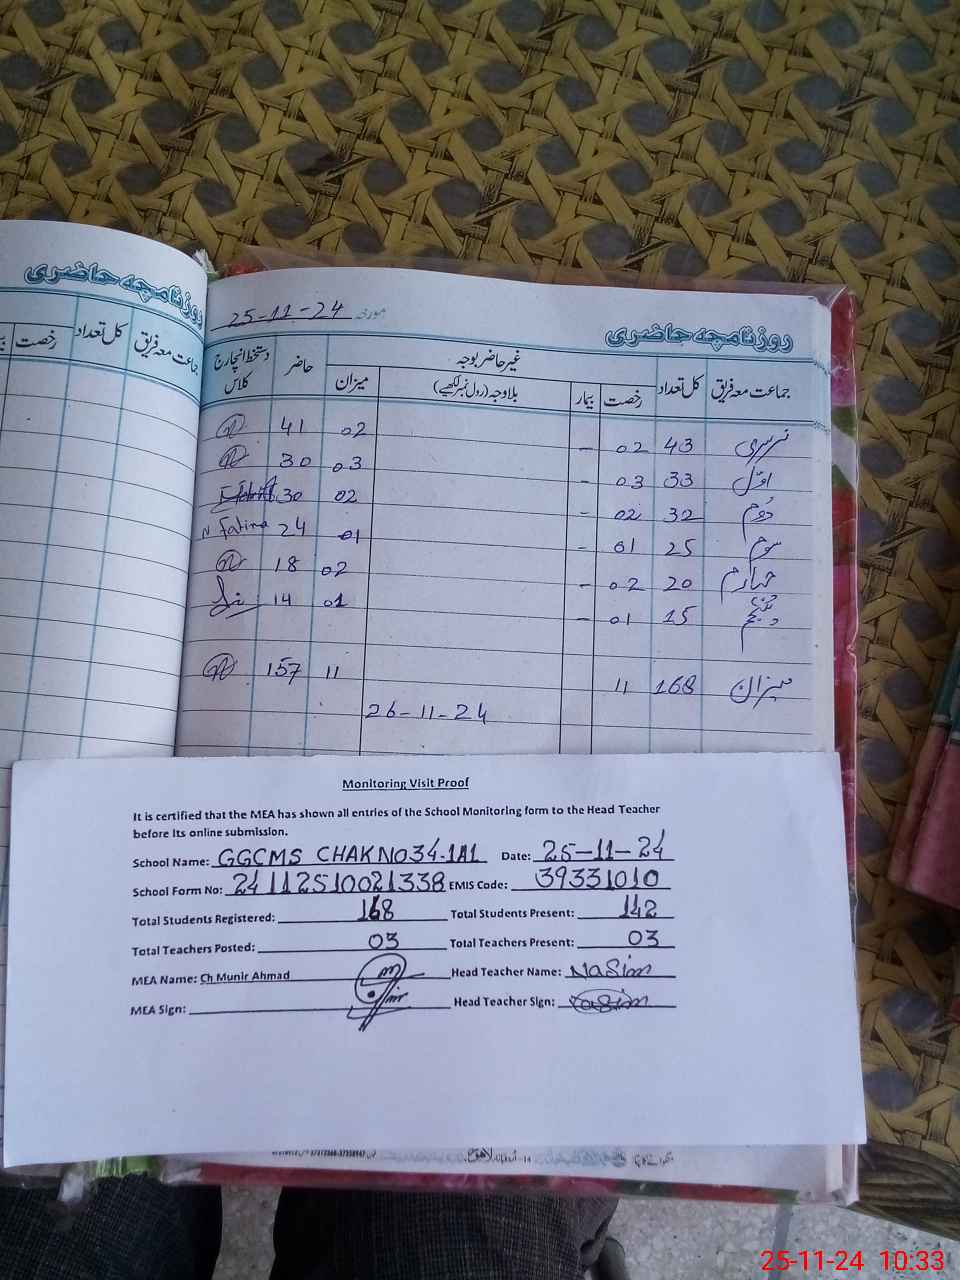 روزنامچہ حاضری
جماعت معہ فریق کل تعداد رخصت
روزنامچہ حاضری مورخہ 25-11-24
جماعت معہ فریق کل تعداد غیر حاضر بوجہ حاضر دستخط انچارج کلاس
رخصت بیمار بلاوجہ (رول نمبر لکھیے) میزان
نرسری 43 02 - 02 41
اول 33 03 - 03 30
دوم 32 02 - 02 30
سوم 25 01 - 01 24 N Fatima
چہارم 20 02 - 02 18
پنجم 15 01 - 01 14
میزان 168 11 11 157
26-11-24
Monitoring Visit Proof
It is certified that the MEA has shown all entries of the School Monitoring form to the Head Teacher
before its online submission.
School Name: GGCMS CHAK NO 34-1A1 Date: 25-11-24
School Form No: 24112510021338 EMIS Code: 39331010
Total Students Registered: 168 Total Students Present: 142
Total Teachers Posted: 03 Total Teachers Present: 03
MEA Name: Ch Munir Ahmad Head Teacher Name: Nasim
MEA Sign: Head Teacher Sign: Nasim
25-11-24 10:33